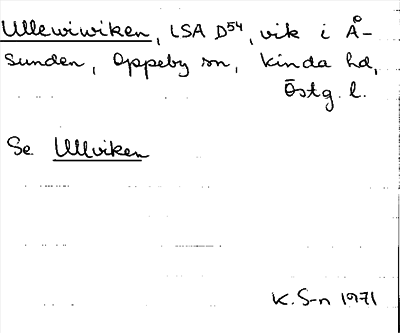 Ullewiwiken, LSA D54, vik i Å-
sunden, Oppeby sn, Kinda hd,
Östg. l.
Se Ullviken
K. S-n 1971